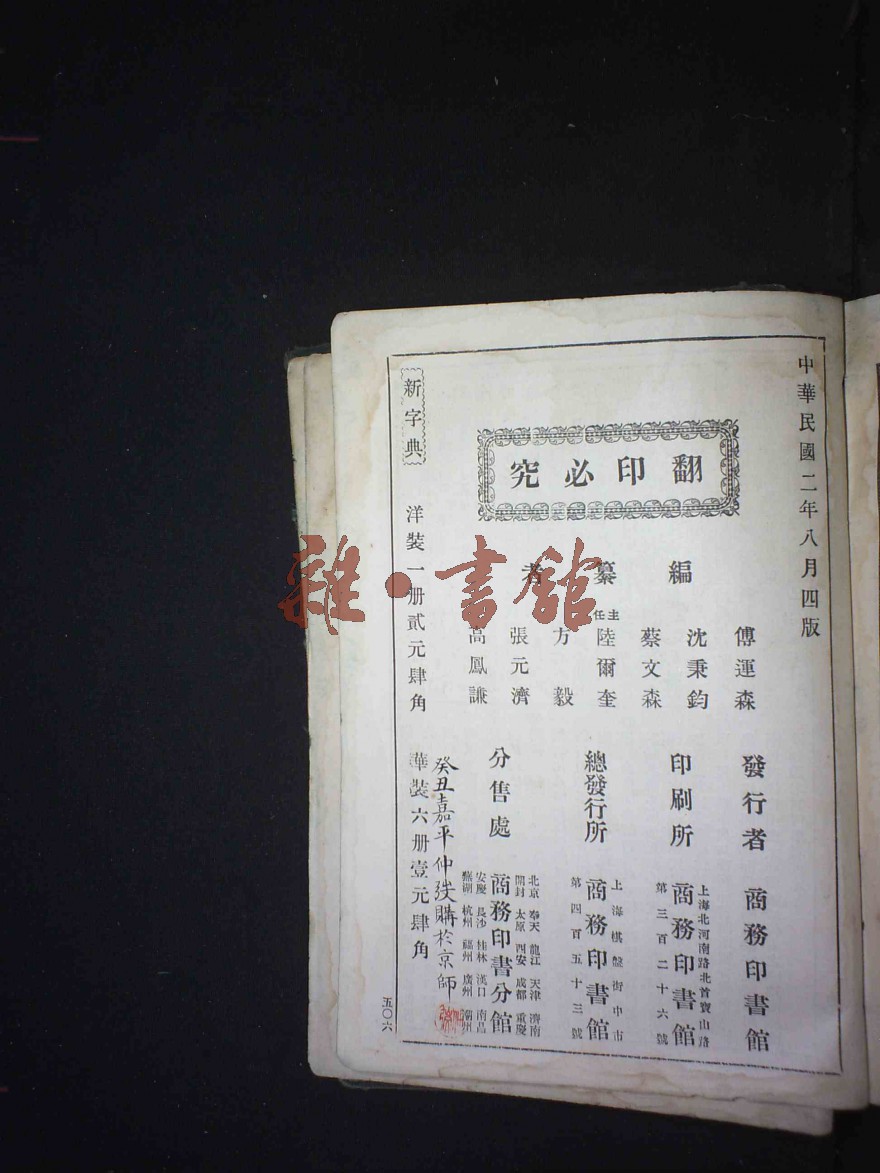 中華民國二年八月四版
翻印必究
編纂者
傅運森
沈秉鈞
蔡文森
主任
陸爾奎
方毅
張元濟
高鳳謙
發行者 商務印書館
印刷所
上海北河南路北首寶山路
商務印書館
第三百二十六號
總發行所
上海棋盤街中市
商務印書館
第四百五十三號
分售處
北京 奉天 龍江 天津 濟南
開封 太原 西安 成都 重慶
商務印書分館
安慶 長沙 桂林 漢口 南昌
蕪湖 杭州 福州 廣州 潮州
癸丑嘉平仲 購於京師
新字典 洋裝一册貳元肆角 華裝六册壹元肆角
五〇六
雜·書館